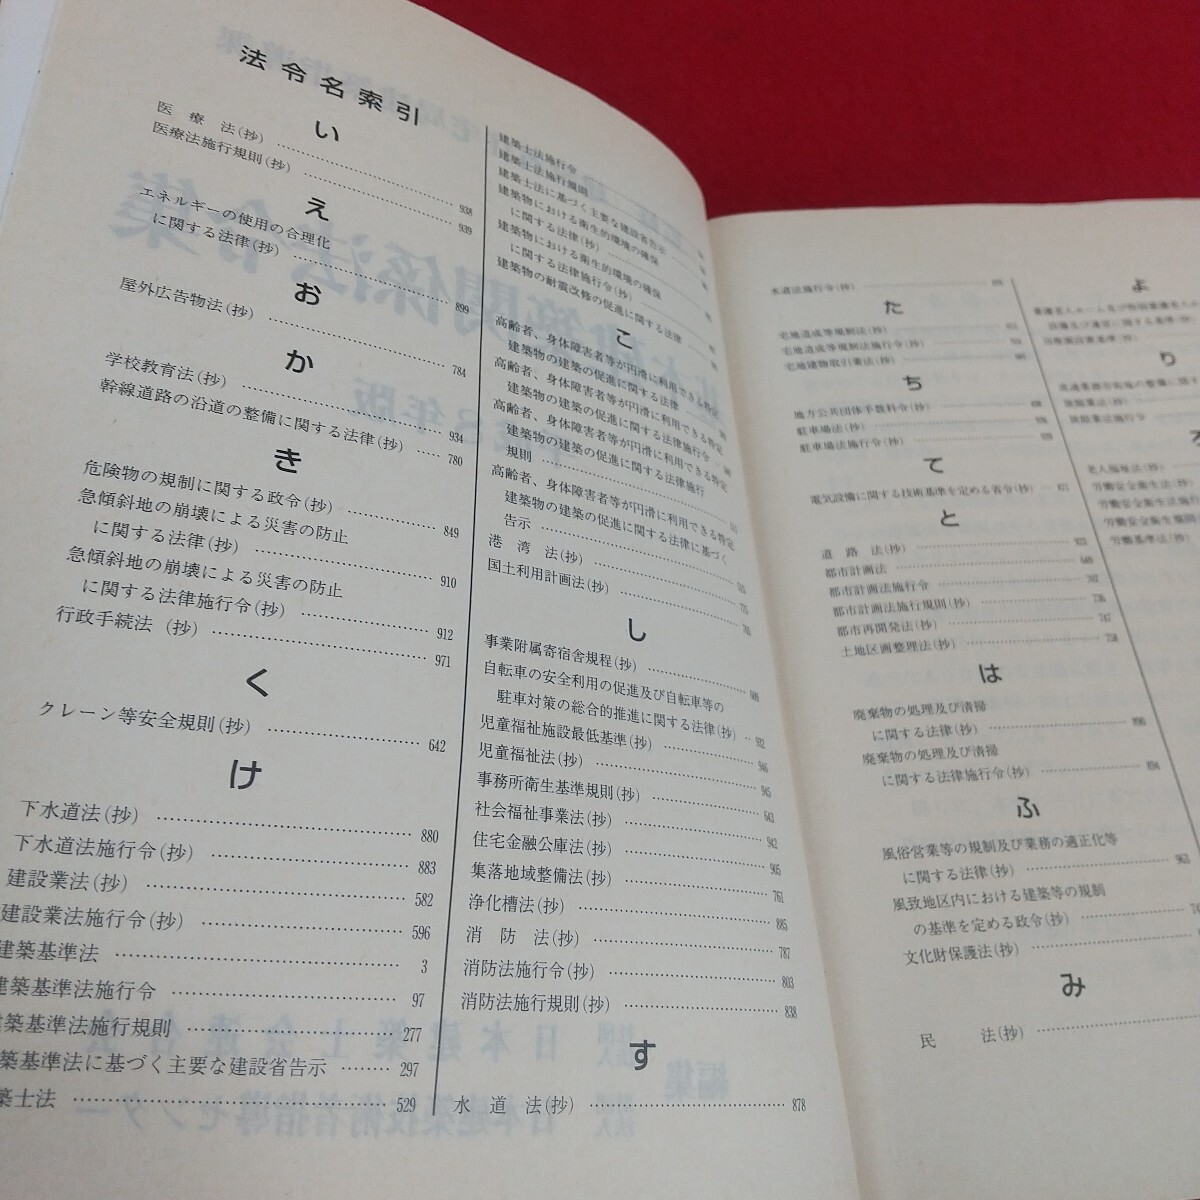 法令名索引
い
医療法(抄) 938
医療法施行規則(抄) 939
え
エネルギーの使用の合理化
に関する法律(抄) 899
お
屋外広告物法(抄) 784
か
学校教育法(抄) 934
幹線道路の沿道の整備に関する法律(抄) 780
き
危険物の規制に関する政令(抄) 849
急傾斜地の崩壊による災害の防止
に関する法律(抄) 910
急傾斜地の崩壊による災害の防止
に関する法律施行令(抄) 912
行政手続法(抄) 971
く
クレーン等安全規則(抄) 642
け
下水道法(抄) 880
下水道法施行令(抄) 883
建設業法(抄) 582
建設業法施行令(抄) 596
建築基準法 3
建築基準法施行令 97
建築基準法施行規則 277
築基準法に基づく主要な建設省告示 297
築士法 529
建築士法施行令
建築士法施行規則
建築士法に基づく主要な建設省告示
建築物における衛生的環境の確保
に関する法律(抄)
建築物における衛生的環境の確保
に関する法律施行令(抄)
建築物の耐震改修の促進に関する法律
こ
高齢者、身体障害者等が円滑に利用できる特定
建築物の建築の促進に関する法律
高齢者、身体障害者等が円滑に利用できる特定
建築物の建築の促進に関する法律施行令
高齢者、身体障害者等が円滑に利用できる特定
建築物の建築の促進に関する法律施行
規則
高齢者、身体障害者等が円滑に利用できる特定
建築物の建築の促進に関する法律に基づく
告示
港湾法(抄)
国土利用計画法(抄)
し
事業附属寄宿舎規程(抄)
自転車の安全利用の促進及び自転車等の
駐車対策の総合的推進に関する法律(抄) 932
児童福祉施設最低基準(抄) 946
児童福祉法(抄) 945
事務所衛生基準規則(抄) 643
社会福祉事業法(抄) 942
住宅金融公庫法(抄) 905
集落地域整備法(抄) 761
浄化槽法(抄) 885
消防法(抄) 787
消防法施行令(抄) 803
消防法施行規則(抄) 838
す
水道法(抄) 878
水道法施行令(抄)
た
宅地造成等規制法(抄)
宅地造成等規制法施行令(抄)
宅地建物取引業法(抄)
ち
地方公共団体手数料令(抄)
駐車場法(抄)
駐車場法施行令(抄)
て
電気設備に関する技術基準を定める省令(抄)
と
道路法(抄)
都市計画法
都市計画法施行令 707
都市計画法施行規則(抄) 736
都市再開発法(抄) 747
土地区画整理法(抄) 758
は
廃棄物の処理及び清掃
に関する法律(抄) 890
廃棄物の処理及び清掃
に関する法律施行令(抄) 894
ふ
風俗営業等の規制及び業務の適正化等
に関する法律(抄) 963
風致地区内における建築等の規制
の基準を定める政令(抄)
文化財保護法(抄)
み
民法(抄)
よ
り
旅館業法(抄)
旅館業法施行令
ろ
老人福祉法(抄)
労働安全衛生法(抄)
労働安全衛生法施行
労働安全衛生規則
労働基準法(抄)